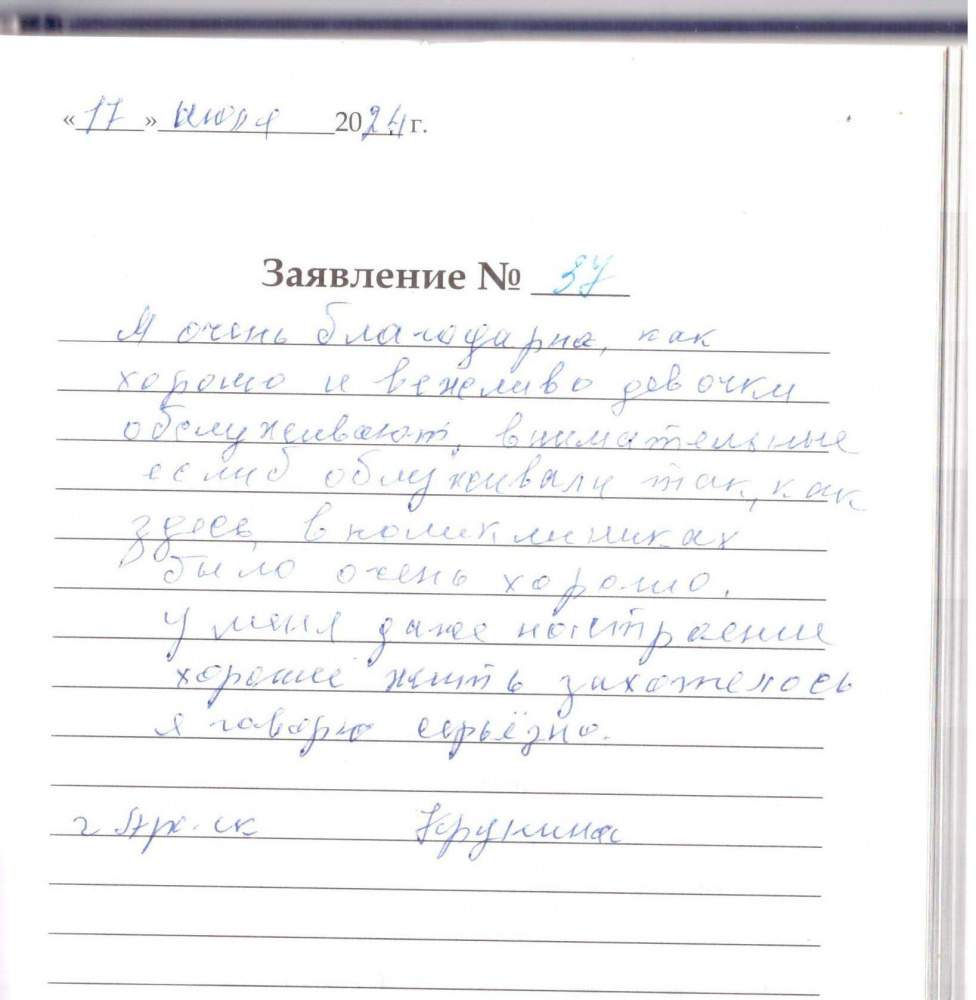 «17» июля 2024 г.
Заявление № 37
Я очень благодарна, как
хорошо и вежливо девочки
обслуживают, внимательные
еслиб облуживали так, как
здесь, в поликлиниках
было очень хорошо.
У меня даже настроение
хорошее жить захотелось
я говорю серьёзно.
г Арх-ск